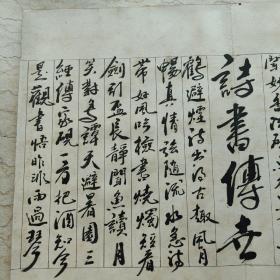 詩書傳世
鶴避煙詩出得古趣風月
暢真情放隨流水急詩
帶好風吟撿書燒燭短看
劍引盃長靜聞魚讀月
笑對鳥譚天避暑園三
經傳家硯一方把酒知今
是觀書悟昨非雨過琴